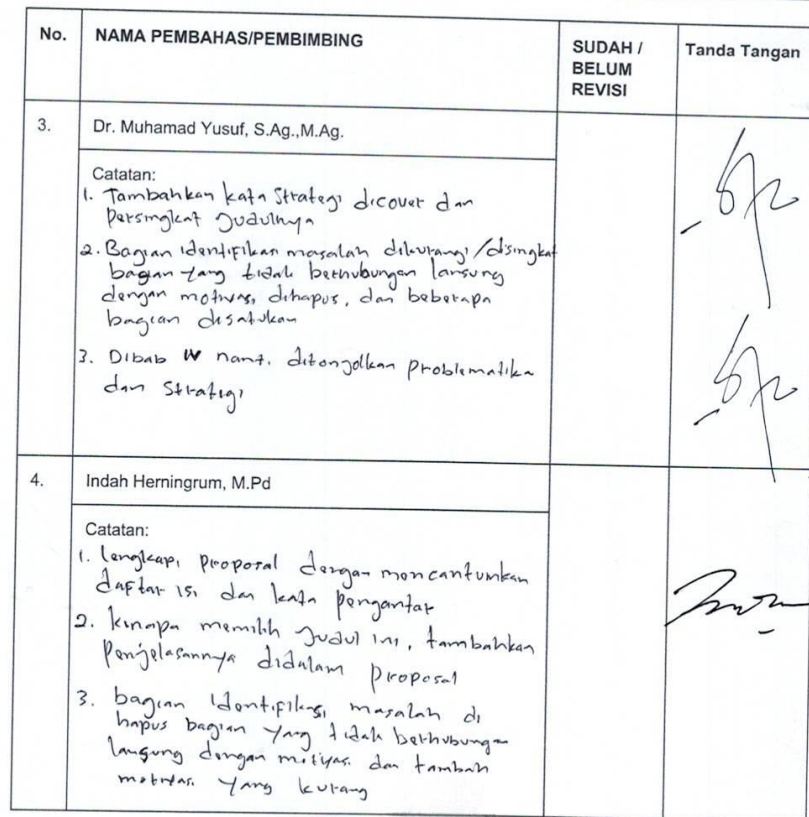 No. NAMA PEMBAHAS/PEMBIMBING SUDAH / Tanda Tangan
BELUM
REVISI
3. Dr. Muhamad Yusuf, S.Ag.,M.Ag.
Catatan:
1. Tambahkan kata Strategi dicover dan
Persingkat Judulnya
2. Bagian identifikasi masalah dikurangi/disingkat
bagian yang tidak berhubungan lansung
dengan motivasi dihapus, dan beberapa
bagian disatukan
3. Dibab IV nanti ditonjolkan problematika
dan Strategi
4. Indah Herningrum, M.Pd
Catatan:
1. lengkapi proposal dengan mencantumkan
daftar isi dan kata pengantar
2. kenapa memilih Judul ini, tambahkan
Penjelasannya didalam proposal
3. bagian identifikasi masalah di
hapus bagian yang tidak berhubungan
langsung dengan motivasi dan tambah
motivasi yang kurang